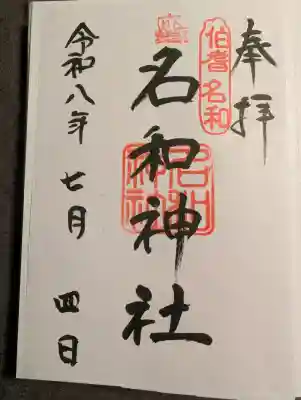 奉拝
伯耆名和
名和神社
名和神社
令和八年七月四日